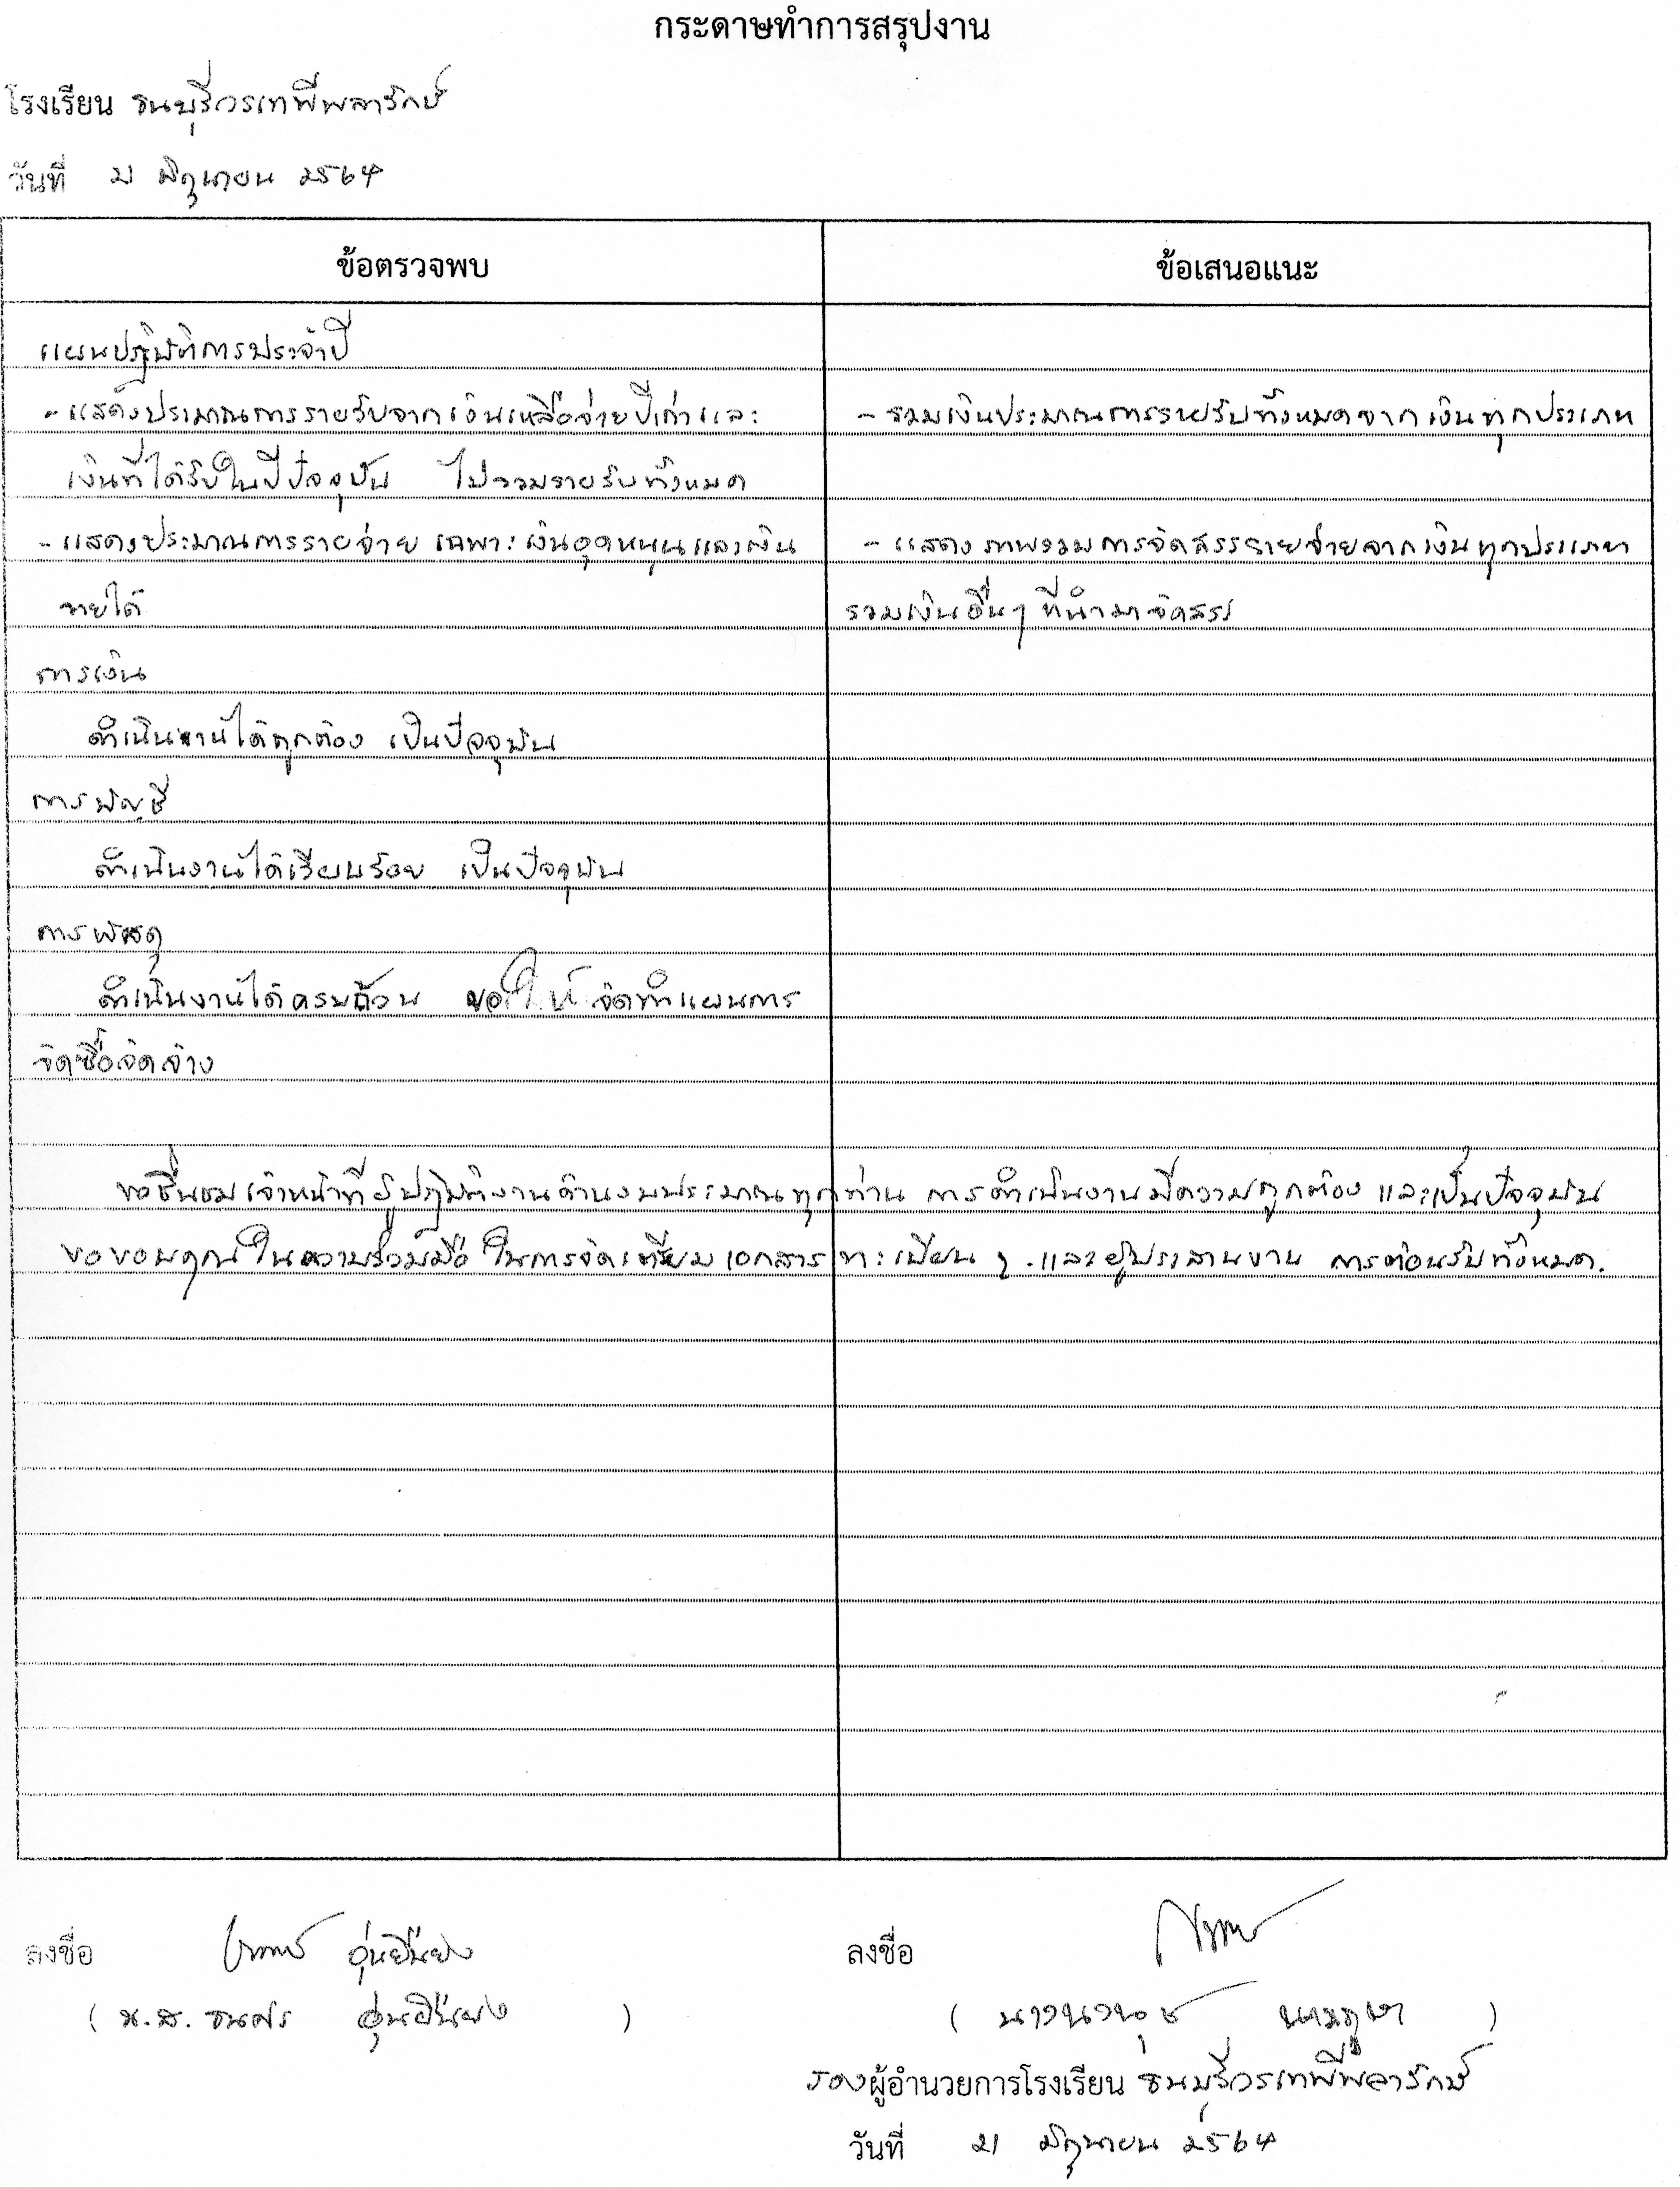 กระดาษทำการสรุปงาน
โรงเรียน ธนบุรีวรเทพีพลารักษ์
วันที่ 21 มิถุนายน 2564
ข้อตรวจพบ ข้อเสนอแนะ
แผนปฏิบัติการประจำปี
- แสดงประมาณการรายรับจากเงินเหลือจ่ายปีเก่าและ - รวมเงินประมาณการรายรับทั้งหมดจากเงินทุกประเภท
เงินที่ได้รับในปีปัจจุบัน ไม่รวมรายรับทั้งหมด
- แสดงประมาณการรายจ่าย เฉพาะเงินอุดหนุนและเงิน - แสดงภาพรวมการจัดสรรรายจ่ายจากเงินทุกประเภท
รายได้ รวมเงินอื่นๆ ที่นำมาจัดสรร
การเงิน
ดำเนินงานได้ถูกต้อง เป็นปัจจุบัน
การบัญชี
ดำเนินงานได้เรียบร้อย เป็นปัจจุบัน
การพัสดุ
ดำเนินงานได้ครบถ้วน ขอให้จัดทำแผนการ
จัดซื้อจัดจ้าง
ขอชื่นชมเจ้าหน้าที่ผู้ปฏิบัติงานด้านงบประมาณทุกท่าน การดำเนินงานมีความถูกต้อง และเป็นปัจจุบัน
ขอขอบคุณในความร่วมมือ ในการจัดเตรียมเอกสาร ทะเบียน ๆ. และผู้ประสานงาน การต้อนรับทั้งหมด.
ลงชื่อ อุ่นยืนยง ลงชื่อ
( น.ส. ธนพร อุ่นยืนยง ) ( นางนงนุช )
รองผู้อำนวยการโรงเรียน ธนบุรีวรเทพีพลารักษ์
วันที่ 21 มิถุนายน 2564